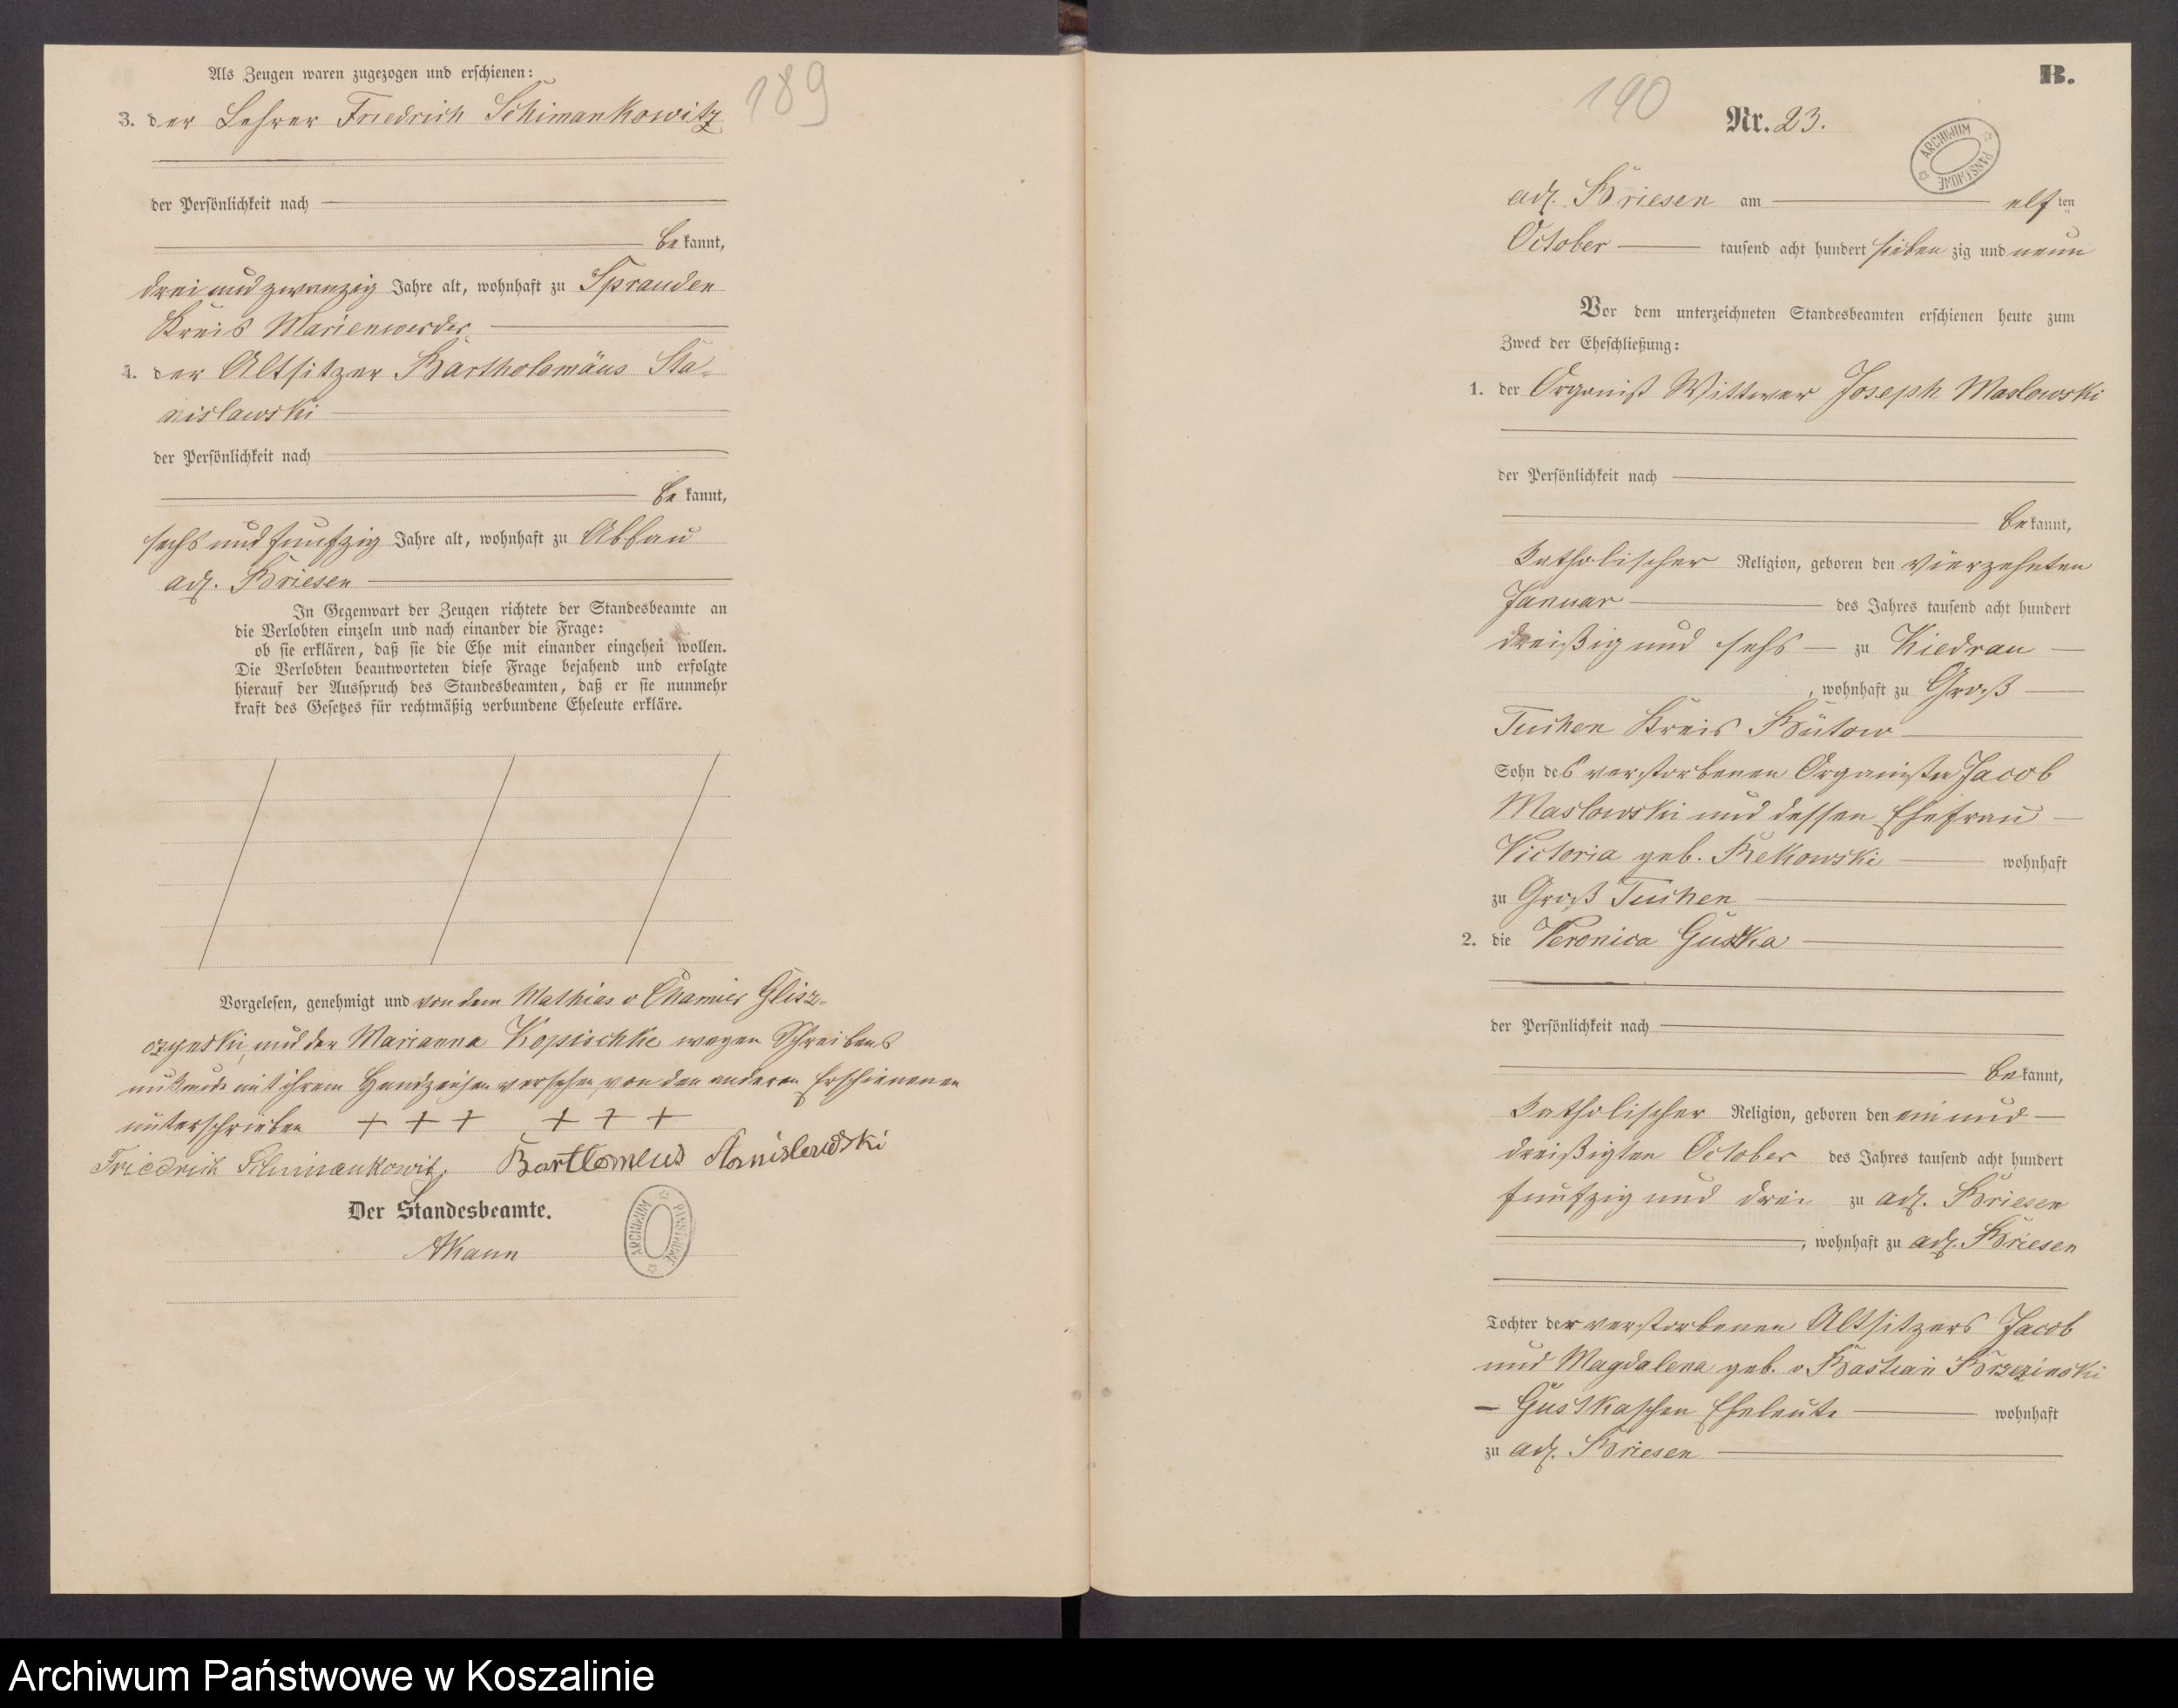 Als Zeugen waren zugezogen und erschienen:
189
3. der Lehrer Friedrich Schimankowitz
der Persönlichkeit nach
bekannt,
drei und zwanzig Jahre alt, wohnhaft zu Sprauden
Kreis Marienwerder
4. der Altsitzer Bartholomäus Sta-
nislawski
der Persönlichkeit nach
bekannt,
sechs und funfzig Jahre alt, wohnhaft zu Abbau
adl. Briesen
In Gegenwart der Zeugen richtete der Standesbeamte an
die Verlobten einzeln und nach einander die Frage:
ob sie erklären, daß sie die Ehe mit einander eingehen wollen.
Die Verlobten beantworteten diese Frage bejahend und erfolgte
hierauf der Ausspruch des Standesbeamten, daß er sie nunmehr
kraft des Gesetzes für rechtmäßig verbundene Eheleute erkläre.
Vorgelesen, genehmigt und von dem Mathias v Chamier Glisz-
czynski, und der Marianna Kopischke wegen Schreibens
unkunde mit ihrem Handzeichen versehen, von den anderen Erschienenen
unterschrieben + + + + + +
Friedrich Schimankowitz Bartlomeus Stanislawski
Der Standesbeamte.
ARCHIWUM PAŃSTWOWE
190
B.
Nr. 23.
ARCHIWUM PAŃSTWOWE
adl. Briesen am elften
October tausend acht hundert siebenzig und neun
Vor dem unterzeichneten Standesbeamten erschienen heute zum
Zweck der Eheschließung:
1. der Organist Wittwer Joseph Maslowski
der Persönlichkeit nach
bekannt,
katholischer Religion, geboren den vierzehnten
Januar des Jahres tausend acht hundert
dreißig und sechs zu Kiedrau
, wohnhaft zu Groß
Tuchen Kreis Bütow
Sohn des verstorbenen Organisten Jacob
Maslowski und dessen Ehefrau
Victoria geb. Rekowski wohnhaft
zu Groß Tuchen
2. die Veronica Gustka
der Persönlichkeit nach
bekannt,
katholischer Religion, geboren den ein und
dreißigten October des Jahres tausend acht hundert
funfzig und drei zu adl. Briesen
, wohnhaft zu adl. Briesen
Tochter der verstorbenen Altsitzers Jacob
und Magdalena geb. v Bastian Brzezinski
– Gustkaschen Eheleute wohnhaft
zu adl. Briesen
Archiwum Państwowe w Koszalinie